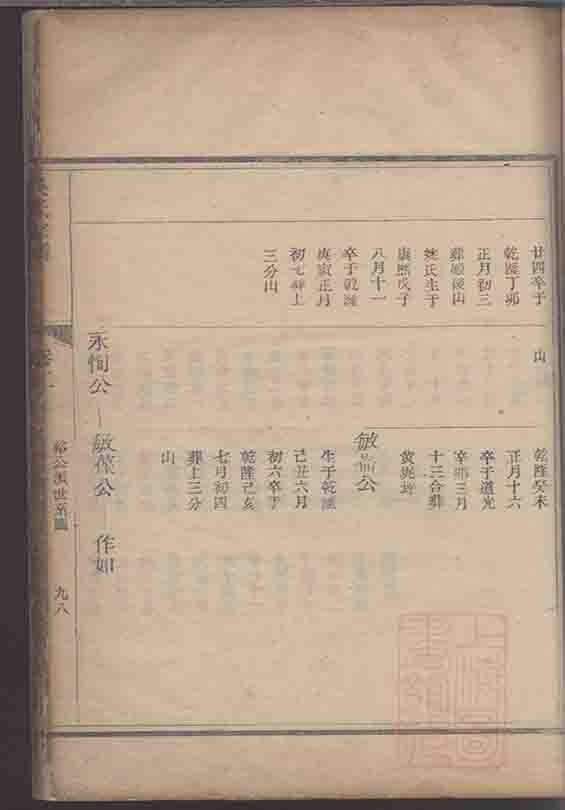 廿四卒于
乾隆丁卯
正月初三
葬順後山
姚氏生于
康熙戊子
八月十一
卒于乾隆
庚寅正月
初七葬上
三分山
山
乾隆癸未
正月十六
卒于道光
辛卯三月
十三合葬
敏公
生于乾隆
己丑六月
初六卒于
乾隆己亥
七月初四
葬上三分
山
永恂公
敏葆公
作如
裕公派世系圖
九八